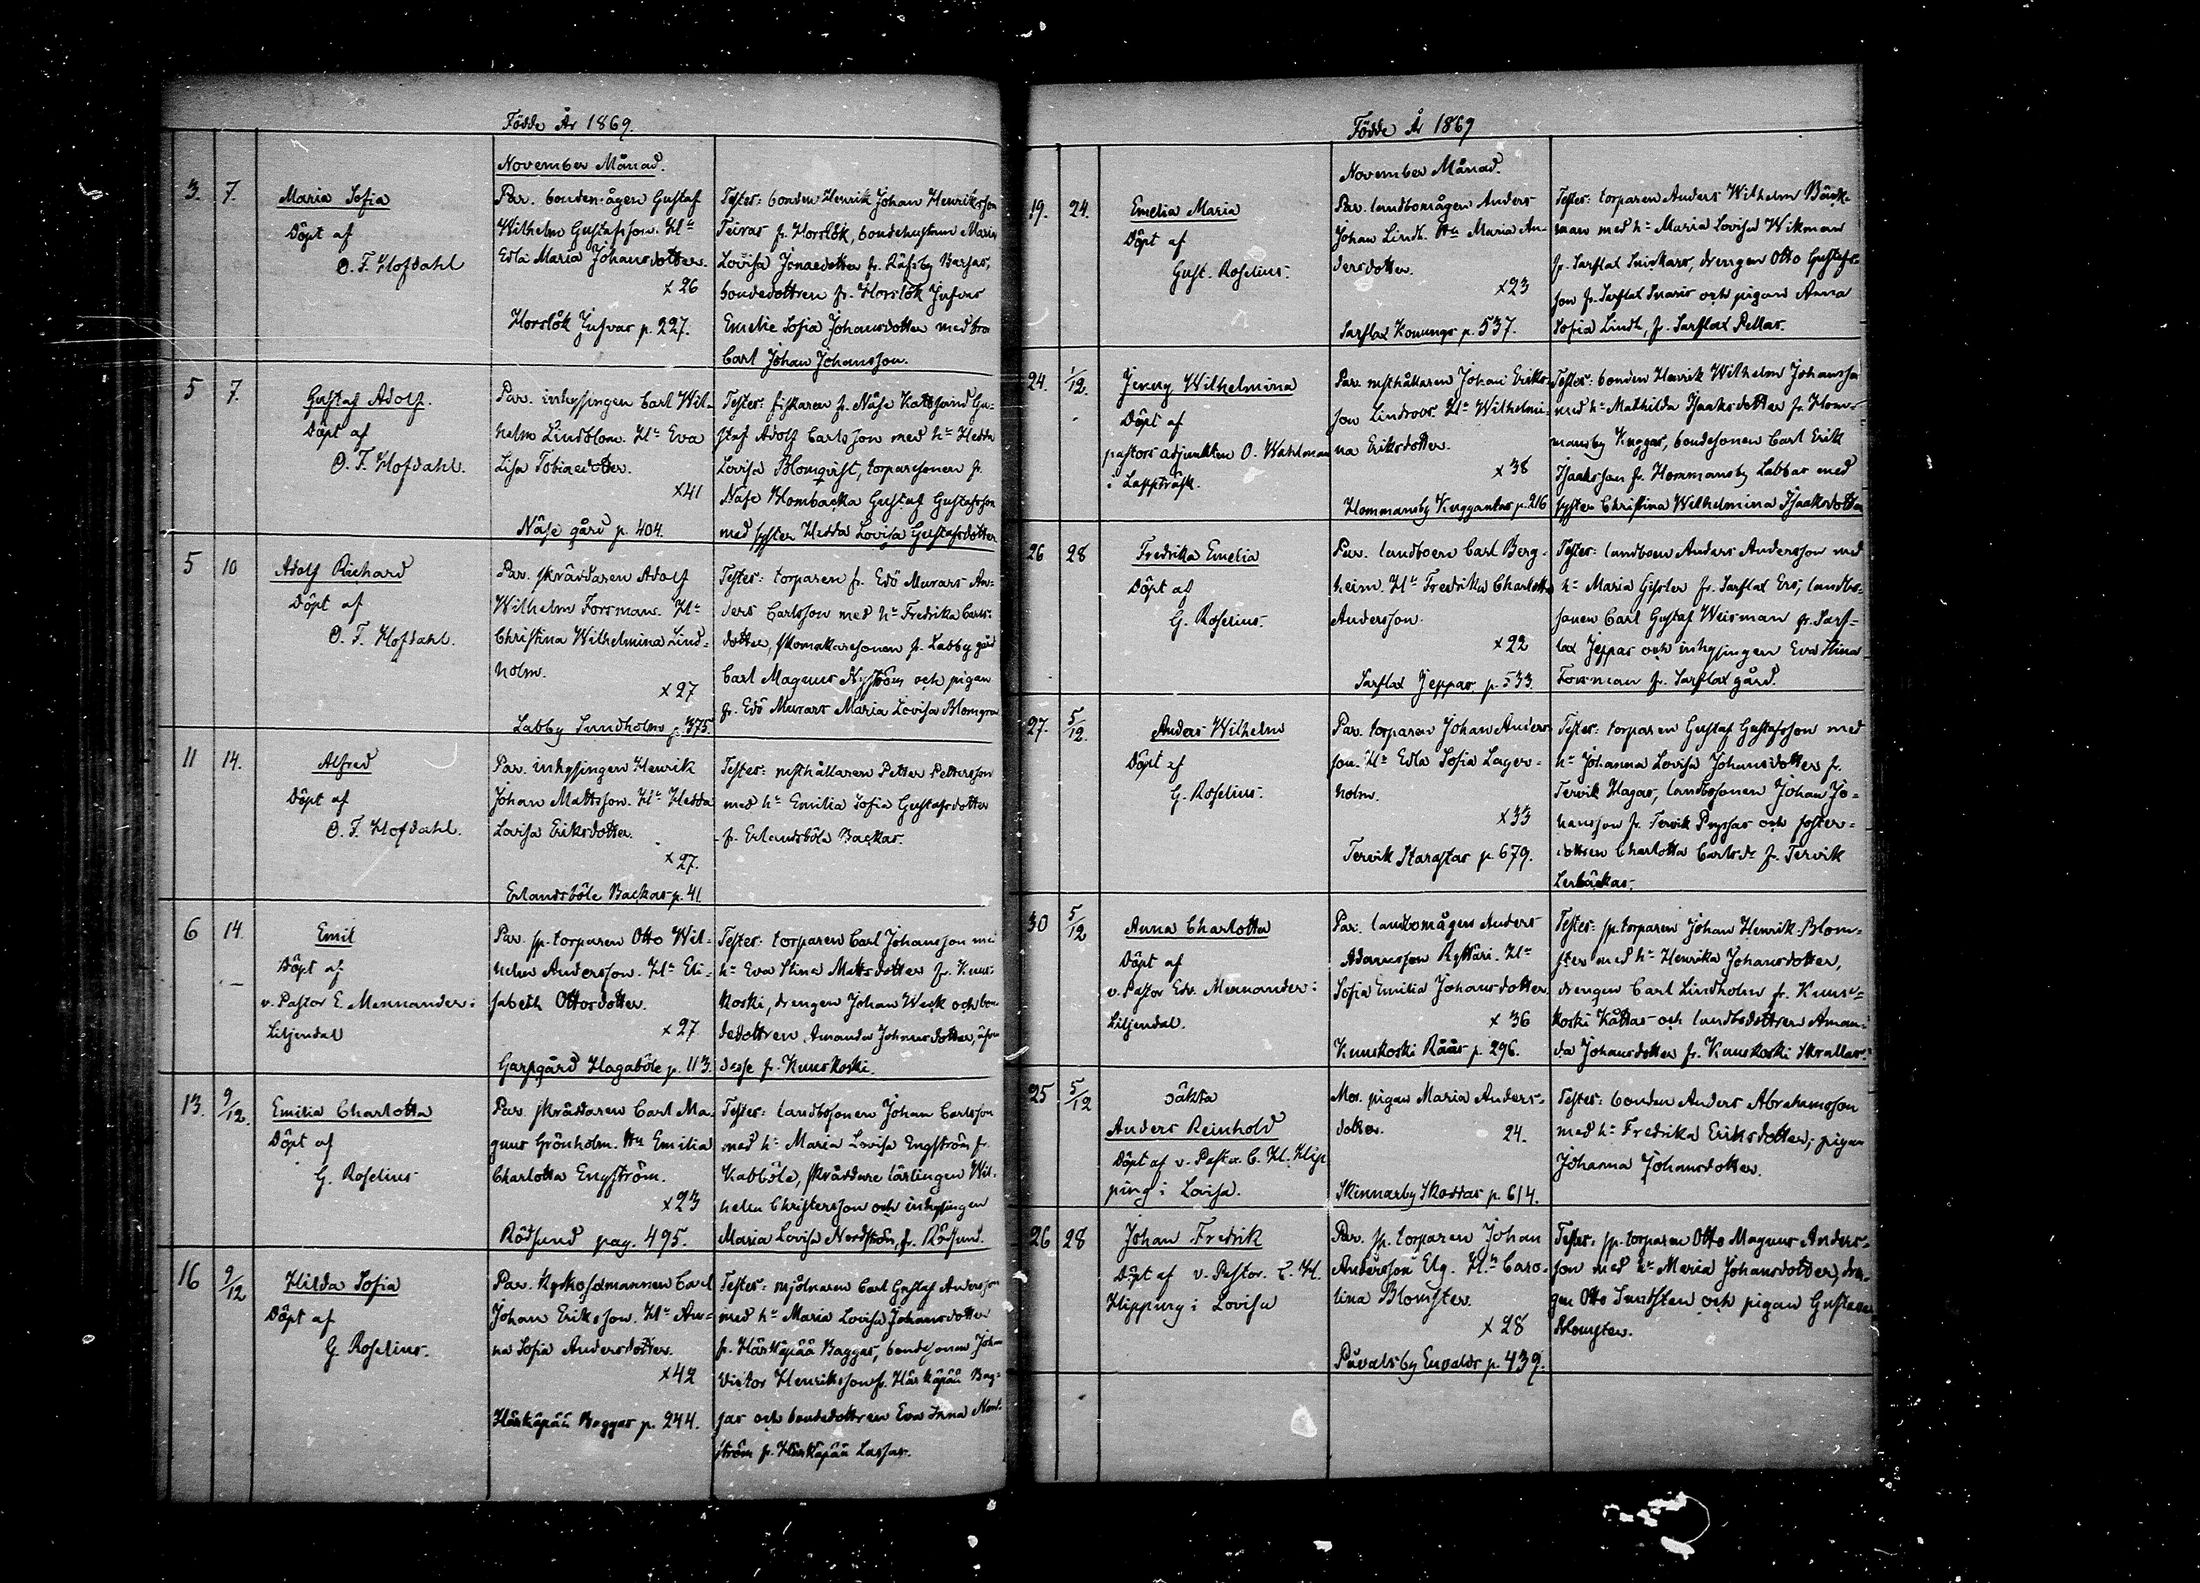 Födde År 1869.
November Månad.
3. 7. Maria Sofia
Döpt af
O. F. Hofdahl
Par. bondemågen Gustaf
Wilhelm Gustafsson. H:u
Edla Maria Johansdotter.
x 26
Horslök Jufvas p. 227.
Testes: bonden Henrik Johan Henriksson
Teiras fr. Horslök, bondehustrun Maria
Lovisa Jonaedotter fr. Räfsby Barsas,
bondedottren fr. Horslök Jufvas
Emelie Sofia Johansdotter med bro
Carl Johan Johansson.
5 7. Gustaf Adolf.
Döpt af
O. F. Hofdahl.
Par. inhysingen Carl Wil-
helm Lindblom. H:u Eva
Lisa Tobiaedotter.
x 41
Näse gård p. 404.
Testes: fiskaren fr. Näse Kattsund Gu-
staf Adolf Carlsson med h:u Hedda
Lovisa Blomqvist, torparesonen fr.
Näse Blombacka Gustaf Gustafsson
med syster Hedda Lovisa Gustafsdotter
5 10 Adolf Richard
Döpt af
O. F. Hofdahl.
Par. skräddaren Adolf
Wilhelm Forsman. H:u
Christina Wilhelmina Lind-
holm.
x 27
Labby Sundholm p. 375.
Testes: torparen fr. Edö Murars An-
ders Carlsson med h:u Fredrika Carls-
dotter, skomakaresonen fr. Labby gård
Carl Magnus Nyström och pigan
fr. Edö Murars Maria Lovisa Blomgren
11 14. Alfred
Döpt af
O. F. Hofdahl.
Par. inhysingen Henrik
Johan Mattsson. H:u Hedda
Lovisa Eriksdotter.
x 27.
Erlandsböle Backas p. 41
Testes: rusthållaren Petter Pettersson
med h:u Emilia Sofia Gustafsdotter
fr. Erlandsböle Backas.
6 14. Emil
Döpt af
v. Pastor E. Mennander i
Liljendal
Par. sp. torparen Otto Wil-
helm Andersson. H:u Eli-
sabeth Ottosdotter.
x 27
Garpgård Hagaböle p. 113.
Testes: torparen Carl Johansson med
h:u Eva Stina Mattsdotter fr. Kuus-
koski, drengen Johan Weck och bon
dedottren Amanda Johansdotter, äfven
desse fr. Kuuskoski.
13. 9/12. Emilia Charlotta
Döpt af
G. Roselius
Par. skräddaren Carl Ma-
gnus Grönholm. H:u Emilia
Charlotta Engström.
x 23
Rödsund pag. 495.
Testes: landbosonen Johan Carlsson
med h:u Maria Lovisa Engström fr.
Kabböle, skräddare lärlingen Wil-
helm Christersson och inhysingen
Maria Lovisa Nordström, fr. Rödsund.
16 9/12 Hilda Sofia
Döpt af
G. Roselius.
Par. Kyrkofdmannen Carl
Johan Eriksson. H:u An-
na Sofia Andersdotter.
x 42
Härkäpää Baggas p. 244.
Testes: mjölnaren Carl Gustaf Andersson
med h:u Maria Lovisa Johansdotter
fr. Härkäpää Baggas, bondesonen Johan
Victor Henriksson fr. Härkäpää Bag-
gas och bondedottren Eva Anna Nord-
ström fr. Härkäpää Lassas.
Födde År 1869
November Månad.
19. 24. Emelia Maria
Döpt af
Gust. Roselius.
Par. landbomågen Anders
Johan Lindh. H:u Maria An-
dersdotter.
x 23
Sarflax Konungs p. 537.
Testes: torparen Anders Wilhelm Bäck-
man med h:u Maria Lovisa Wikman
fr. Sarflax Snickars, drengen Otto Gustafs-
son fr. Sarflax Snaris och pigan Anna
Sofia Lindh, fr. Sarflax Pellas.
24. 1/12. Jenny Wilhelmina
Döpt af
pastors adjunkten O. Wahlman
i Lappträsk.
Par. rusthållaren Johan Eriks-
son Lindroos. H:u Wilhelmi-
na Eriksdotter.
x 38
Hommansby Kuggantas p. 216
Testes: bonden Henrik Wilhelm Johansson
med h:u Mathilda Isaksdotter fr. Hom-
mansby Knggas, bondesonen Carl Erik
Isaksson fr. Hommansby Labbas med
syster Christina Wilhelmina Isaksdotter
26 28 Fredrika Emelia
Döpt af
G. Roselius.
Par. landboen Carl Berg-
heim. H:u Fredrika Charlotta
Andersson.
x 22
Sarflax Jeppas p. 533.
Testes: landboen Anders Andersson med
h:u Maria Gisler fr. Sarflax Ers, landbo-
sonen Carl Gustaf Weisman fr. Sarf-
lax Jeppas och inhysingen Eva Stina
Forsman fr. Sarflax gård.
27. 5/12. Anders Wilhelm
Döpt af
G. Roselius.
Par. torparen Johan Anders-
son. H:u Edla Sofia Lager-
holm.
x 33
Tervik Starastas p. 679.
Testes: torparen Gustaf Gustafsson med
h:u Johanna Lovisa Johansdotter fr.
Tervik Hagas, landbosonen Johan Jo-
hansson fr. Tervik Pryssas och foster-
dottren Charlotta Carlsdr fr. Tervik
Lerbäckas.
30 5/12 Anna Charlotta
Döpt af
v. Pastor Edv. Mennander i
Liljendal.
Par. landbomågen Anders
Adamsson Ryttäri. H:u
Sofia Emilia Johansdotter
x 36
Kuuskoski Räär p. 296.
Testes: sp. torparen Johan Henrik Blom-
ster med h:u Henrika Johansdotter,
drengen Carl Lindholm fr. Kuus-
koski Kåttas och landbodottren Aman-
da Johansdotter fr. Kuuskoski Skrallas.
25 5/12 oäkta
Anders Reinhold
Döpt af v. Past. C. H. Klip
ping i Lovisa.
Mor. pigan Maria Anders-
dotter.
24.
Skinnarby Skoddas p. 614.
Testes: bonden Anders Abrahamsson
med h:u Fredrika Eriksdotter, pigan
Johanna Johansdotter.
26 28 Johan Fredrik
Döpt af v. Pastor. C. H.
Klipping i Lovisa
Par. sp. torparen Johan
Andersson Elg. H:u Caro-
lina Blomster.
x 28
Påvalsby Envalds p. 439.
Testes: sp. torparen Otto Magnus Anders-
son med h:u Maria Johansdotter, dren-
gen Otto Sundsten och pigan Gustava
Blomster.